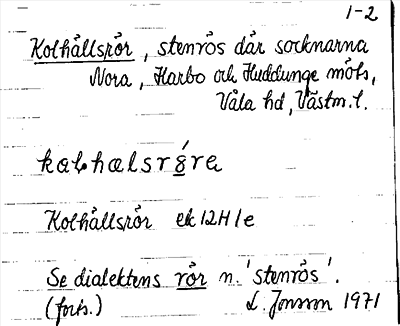 1-2
Kolhållsrör, stenrös där socknarna
Nora, Harbo och Huddunge möts,
Våla hd, Västm. l.
Kolhållsrör ek 12H1e
Se dialektens rör n. 'stenrös'.
(forts.) L. Jonsson 1971